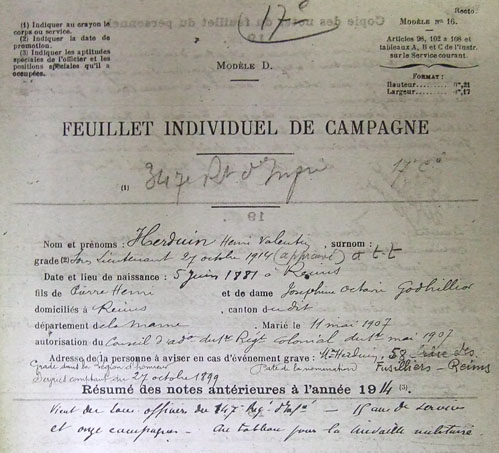 17e
Recto.
(1) Indiquer au crayon le
corps ou service.
(2) Indiquer la date de
promotion.
(3) Indiquer les aptitudes
spéciales de l'officier et les
positions spéciales qu'il a
occupées.
MODÈLE No 16.
Articles 98, 102 à 108 et
tableaux A, B et C de l'instr.
sur le Service courant.
MODÈLE D.
FORMAT :
Hauteur........ 0m,21
Largeur........ 0m,17
FEUILLET INDIVIDUEL DE CAMPAGNE
(1) 347e Rt d'Infrie 17e Cie
19
Nom et prénoms : Herduin Henri Valentin, surnom :
grade (2) Sous Lieutenant 27 octobre 1914 (approuvé) à t.t
Date et lieu de naissance : 5 juin 1881 à Reims
fils de Pierre Henri et de dame Joséphine Godhillier
domiciliés à Reims, canton dudit
département de la Marne. Marié le 11 mai 1907
autorisation du Conseil d'adon du 1er Régt colonial du 1er mai 1907
Adresse de la personne à aviser en cas d'événement grave : Me Herduin, 58 rue des
Fusilliers - Reims
Grade dans la légion d'honneur Date de la nomination
Services comptant du 27 octobre 1899
Résumé des notes antérieures à l'année 1914 (3).
Vient des sous officiers du 147e Régt d'Infie - 15 ans de services
et onze campagnes - Au tableau pour la médaille militaire